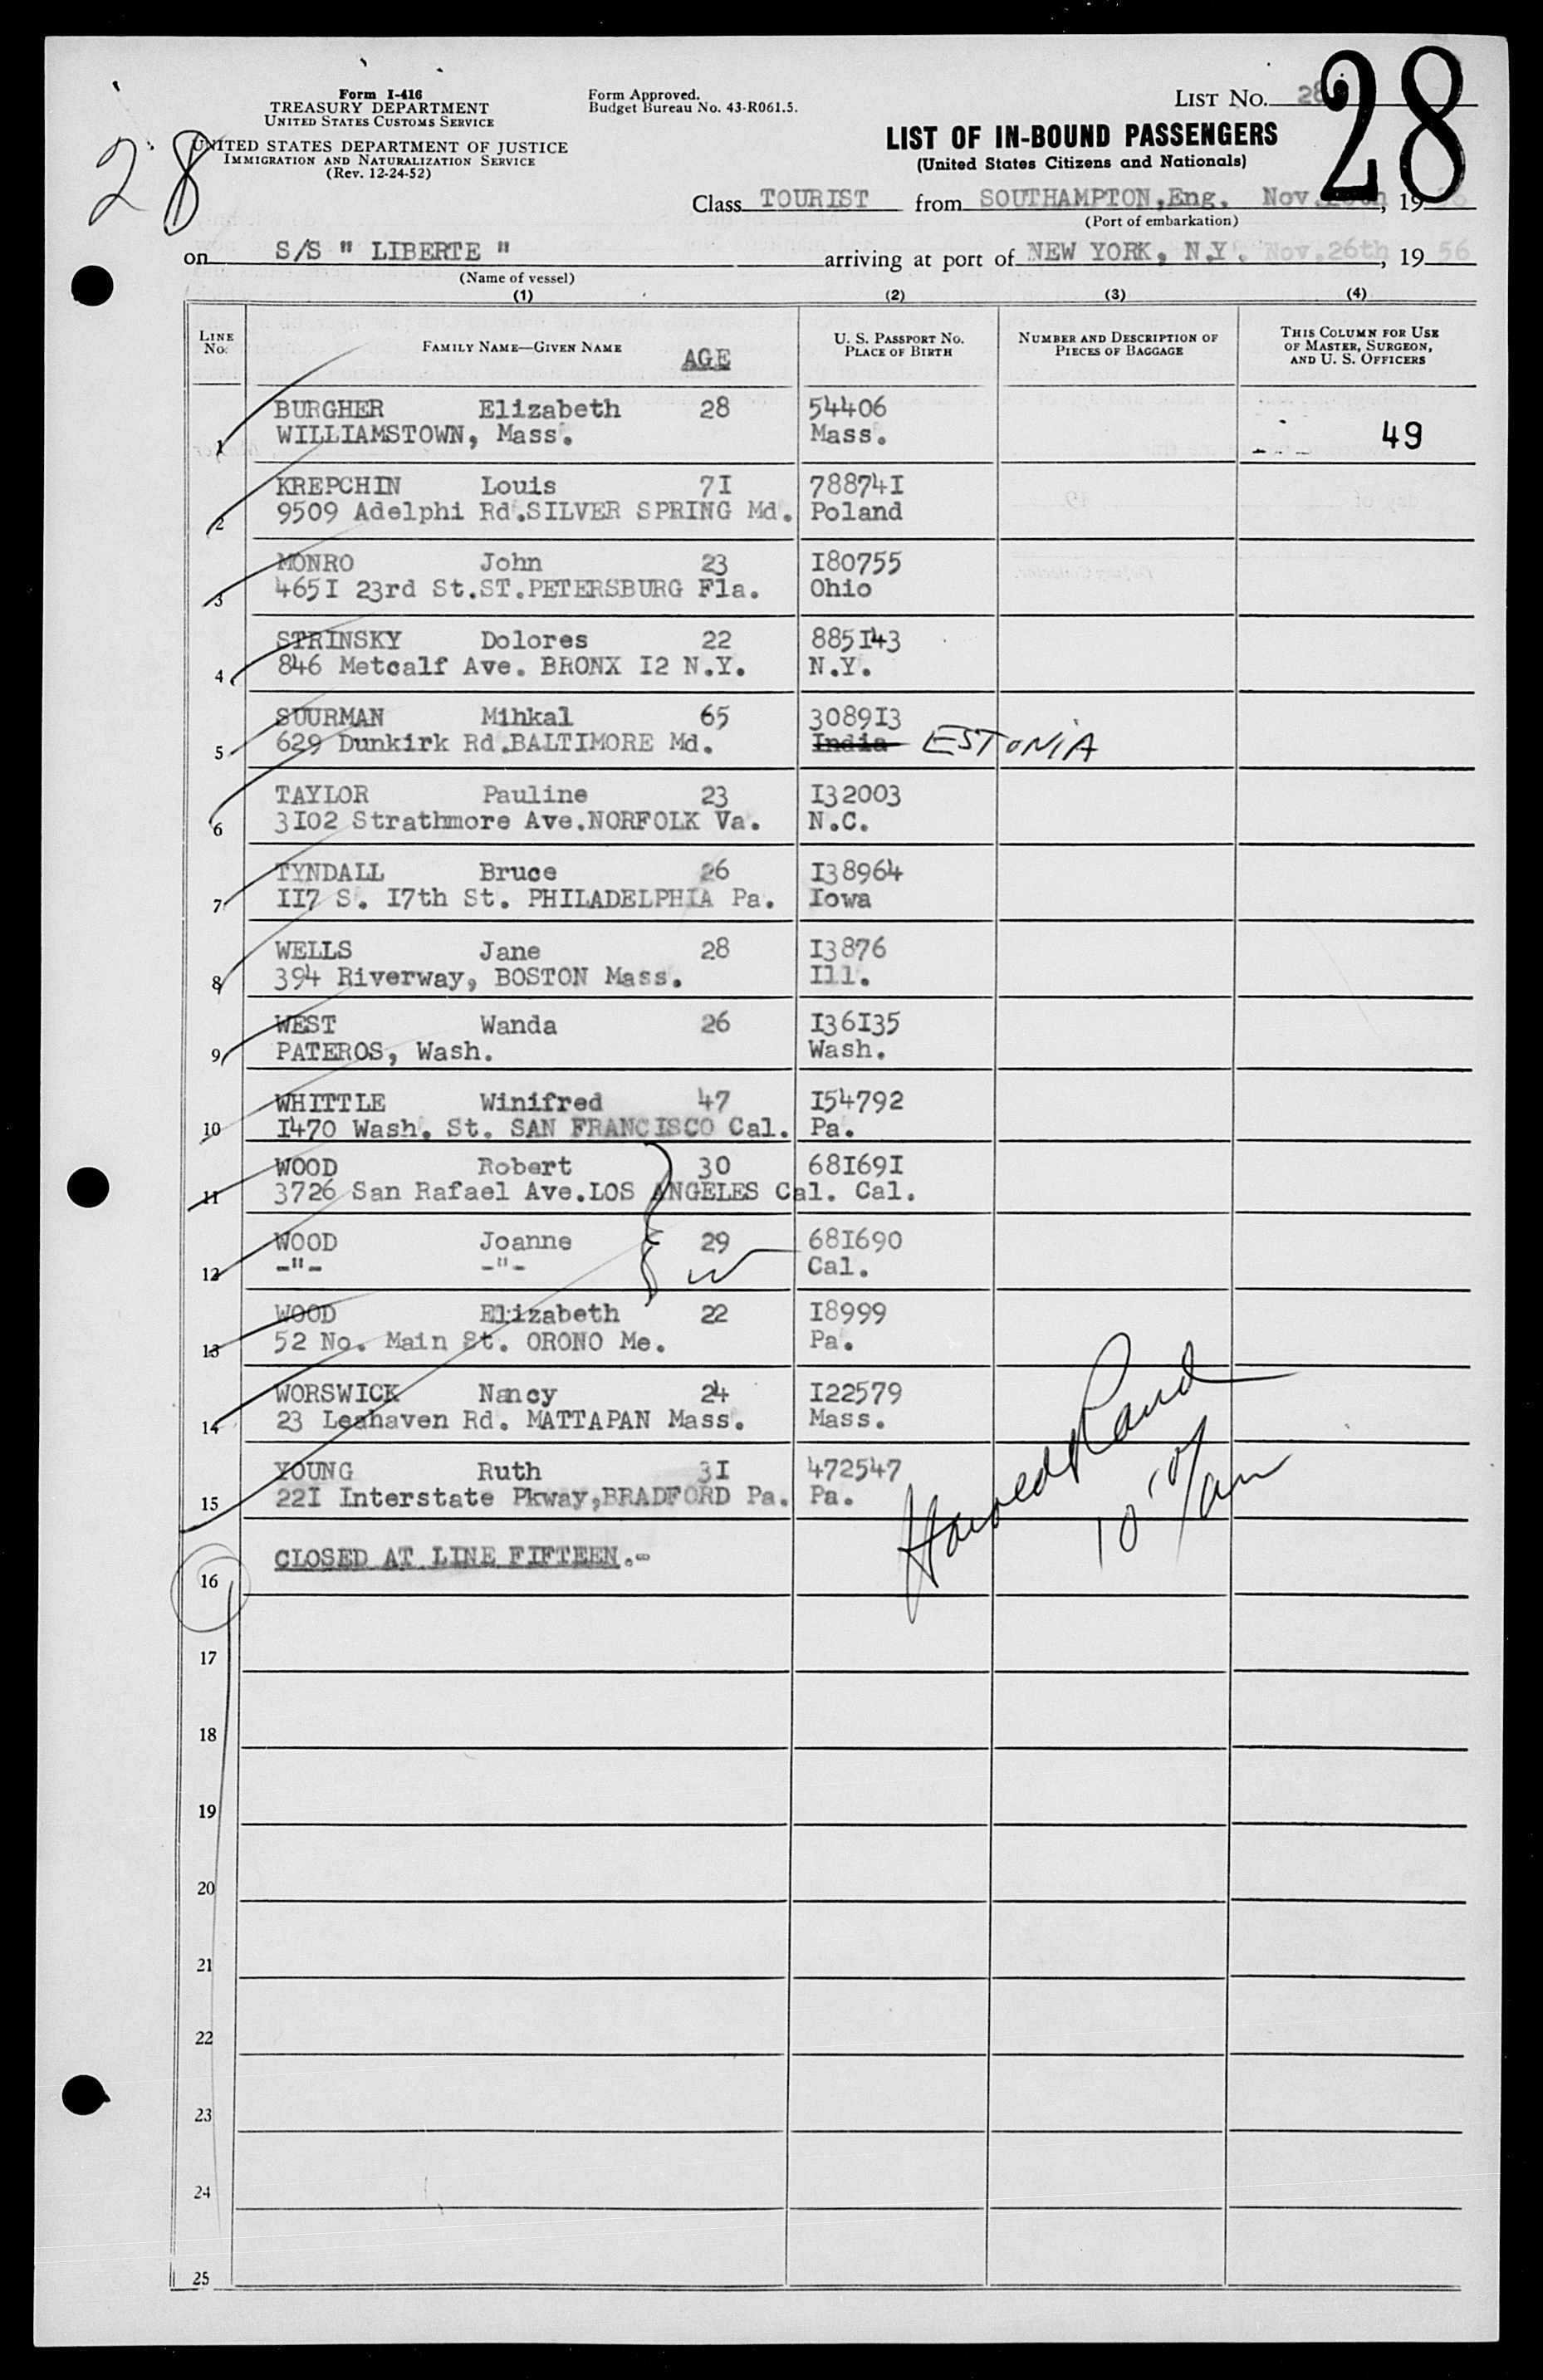 28
Form I-416
TREASURY DEPARTMENT
UNITED STATES CUSTOMS SERVICE
UNITED STATES DEPARTMENT OF JUSTICE
IMMIGRATION AND NATURALIZATION SERVICE
(Rev. 12-24-52)
28
Form Approved.
Budget Bureau No. 43-R061.5.
LIST NO. 28
LIST OF IN-BOUND PASSENGERS
(United States Citizens and Nationals)
Class TOURIST from SOUTHAMPTON,Eng. Nov. , 19
(Port of embarkation)
on S/S " LIBERTE " arriving at port of NEW YORK, N.Y. Nov.26th , 19 56
(Name of vessel)
(1) (2) (3) (4)
LINE NO. FAMILY NAME—GIVEN NAME AGE U. S. PASSPORT NO. PLACE OF BIRTH NUMBER AND DESCRIPTION OF PIECES OF BAGGAGE THIS COLUMN FOR USE OF MASTER, SURGEON, AND U. S. OFFICERS
BURGHER Elizabeth 28 54406
1 WILLIAMSTOWN, Mass. Mass. 49
KREPCHIN Louis 7I 78874I
2 9509 Adelphi Rd.SILVER SPRING Md. Poland
MONRO John 23 I80755
3 465I 23rd St.ST.PETERSBURG Fla. Ohio
STRINSKY Dolores 22 885I43
4 846 Metcalf Ave. BRONX I2 N.Y. N.Y.
SUURMAN Mihkal 65 3089I3
5 629 Dunkirk Rd.BALTIMORE Md. India ESTONIA
TAYLOR Pauline 23 I32003
6 3I02 Strathmore Ave.NORFOLK Va. N.C.
TYNDALL Bruce 26 I38964
7 II7 S. I7th St. PHILADELPHIA Pa. Iowa
WELLS Jane 28 I3876
8 394 Riverway, BOSTON Mass. Ill.
WEST Wanda 26 I36I35
9 PATEROS, Wash. Wash.
WHITTLE Winifred 47 I54792
10 I470 Wash. St. SAN FRANCISCO Cal. Pa.
WOOD Robert 30 68I69I
11 3726 San Rafael Ave.LOS ANGELES Cal. Cal.
WOOD Joanne 29 68I690
12 -"- -"- W Cal.
WOOD Elizabeth 22 I8999
13 52 No. Main St. ORONO Me. Pa.
WORSWICK Nancy 24 I22579
14 23 Leahaven Rd. MATTAPAN Mass. Mass.
YOUNG Ruth 3I 472547
15 22I Interstate Pkway,BRADFORD Pa. Pa.
Harold Rand
10 am
CLOSED AT LINE FIFTEEN.-
16
17
18
19
20
21
22
23
24
25